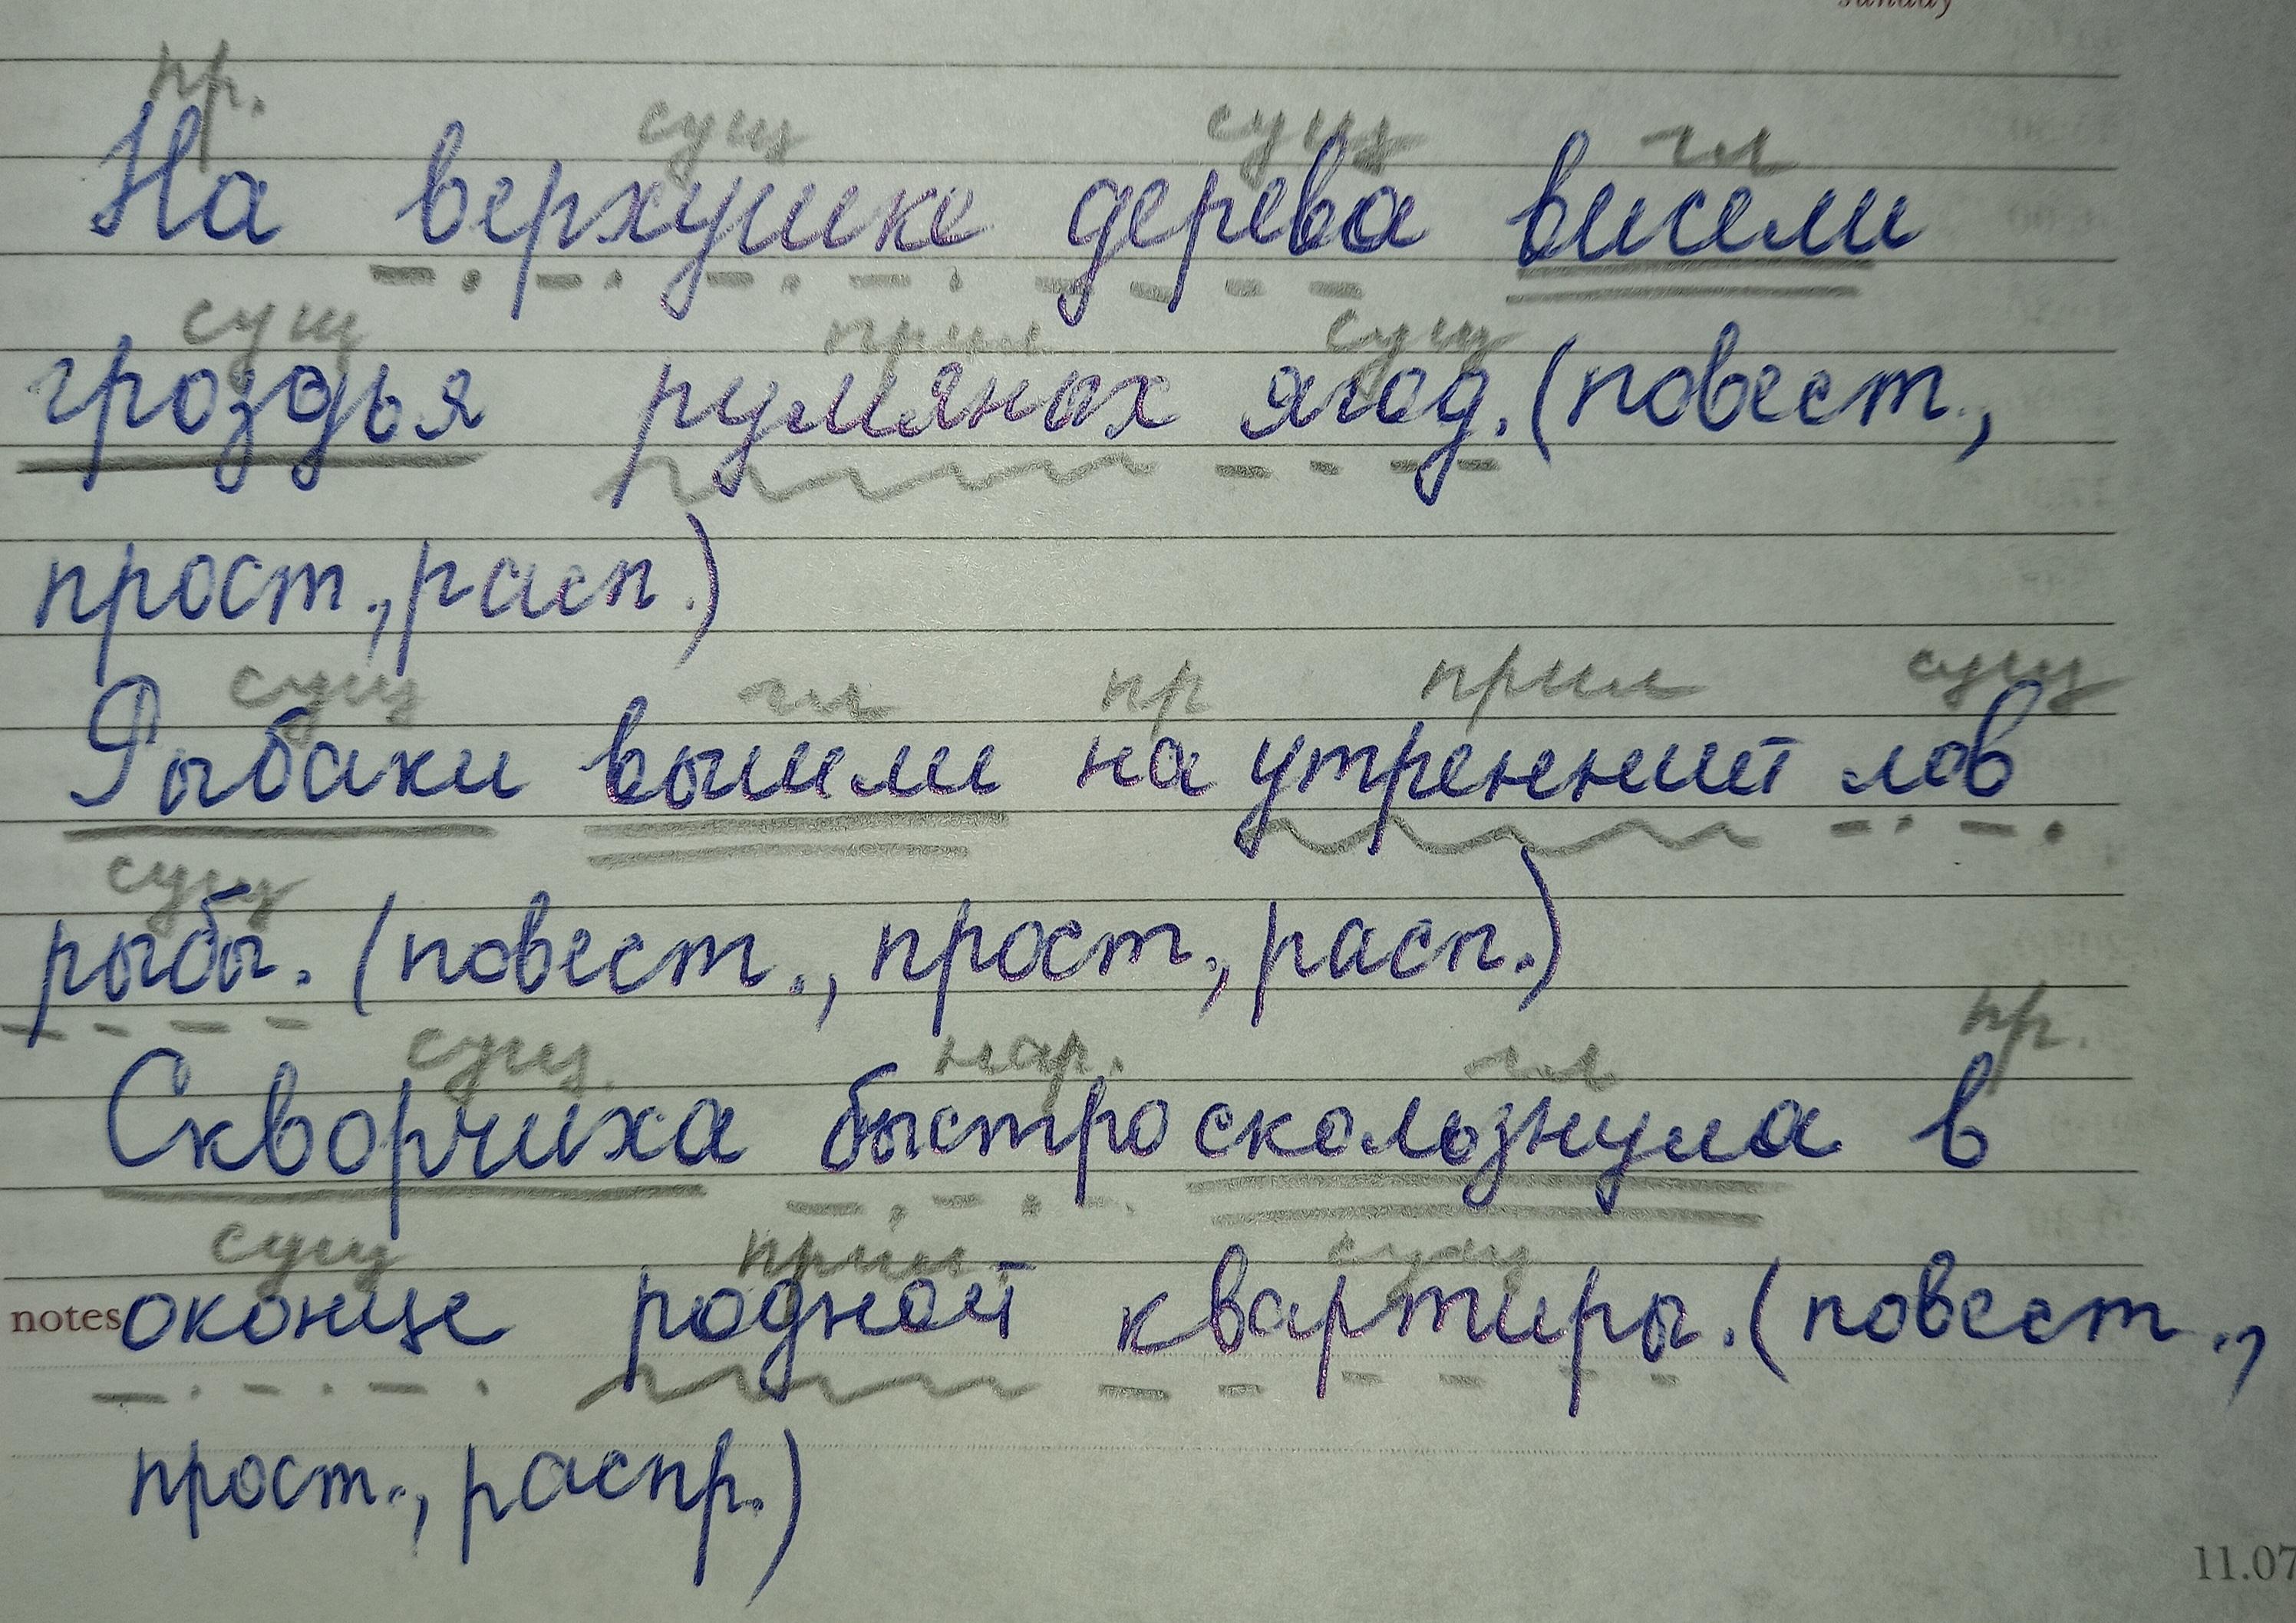 sunday
пр. сущ сущ гл
На верхушке дерева висели
сущ прил сущ
гроздья румяных ягод. (повест.,
прост., расп.)
сущ гл пр прил сущ
Рыбаки вышли на утренний лов
сущ
рыбы. (повест., прост., расп.)
сущ. нар. гл пр.
Скворчиха быстро скользнула в
сущ прил. сущ
notes оконце родной квартиры. (повест.,
прост., распр.)
11.07